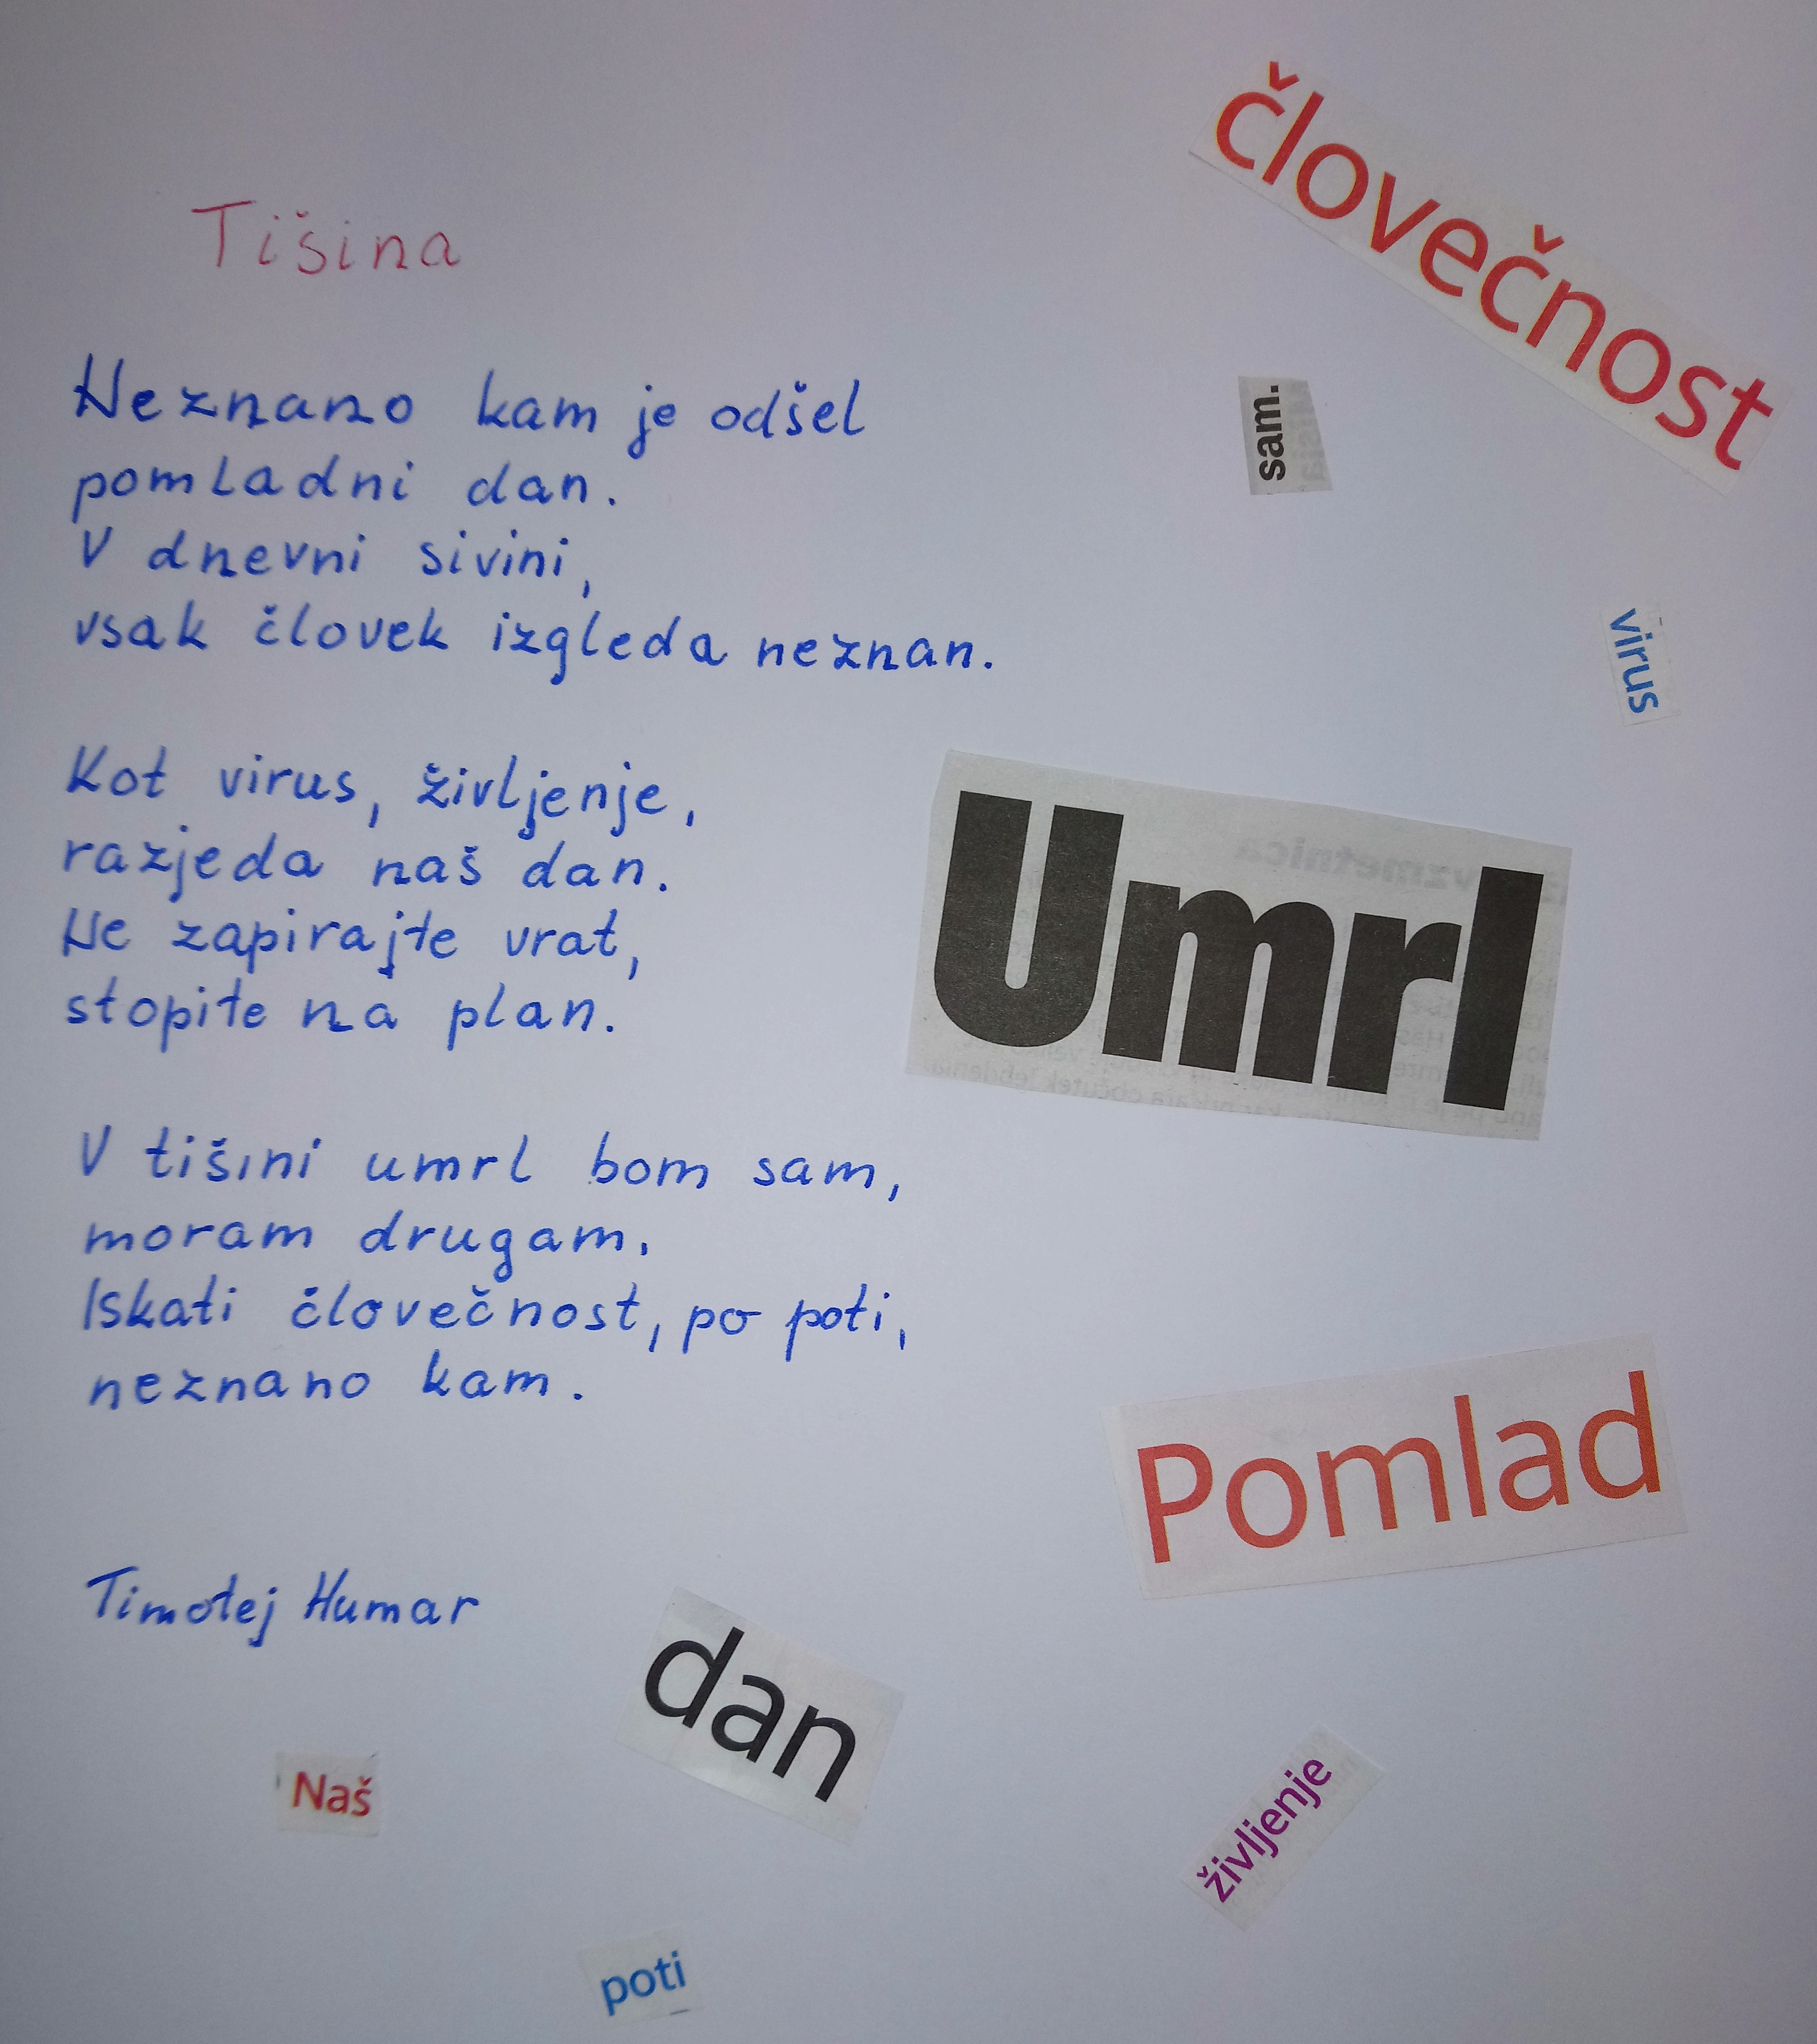 Tišina
Neznano kam je odšel
pomladni dan.
V dnevni sivini,
vsak človek izgleda neznan.
Kot virus, življenje,
razjeda naš dan.
Ne zapirajte vrat,
stopite na plan.
V tišini umrl bom sam,
moram drugam.
Iskati človečnost, po poti,
neznano kam.
Timotej Humar
človečnost
sam.
virus
Umrl
Pomlad
dan
Naš
življenje
poti